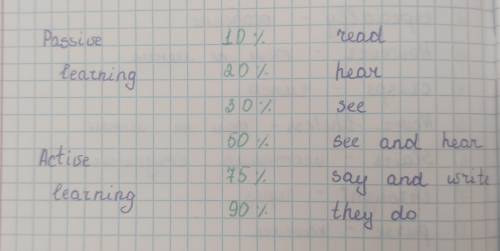 Passive 10% read
learning 20% hear
30% see
50% see and hear
Active 75% say and write
learning 90% they do